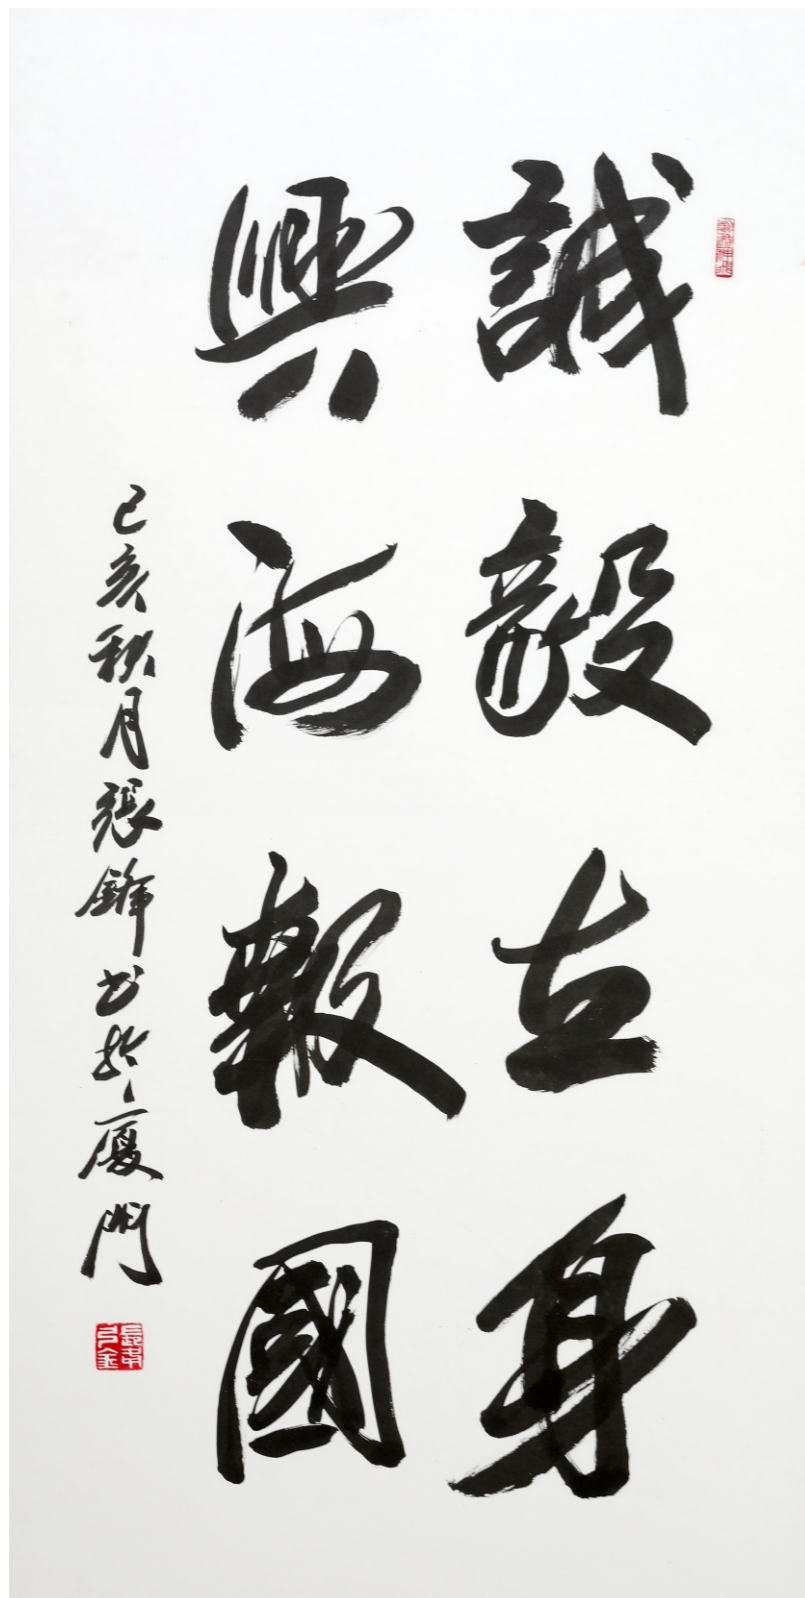 誠毅立身
興海報國
己亥秋月張鋒書於廈門